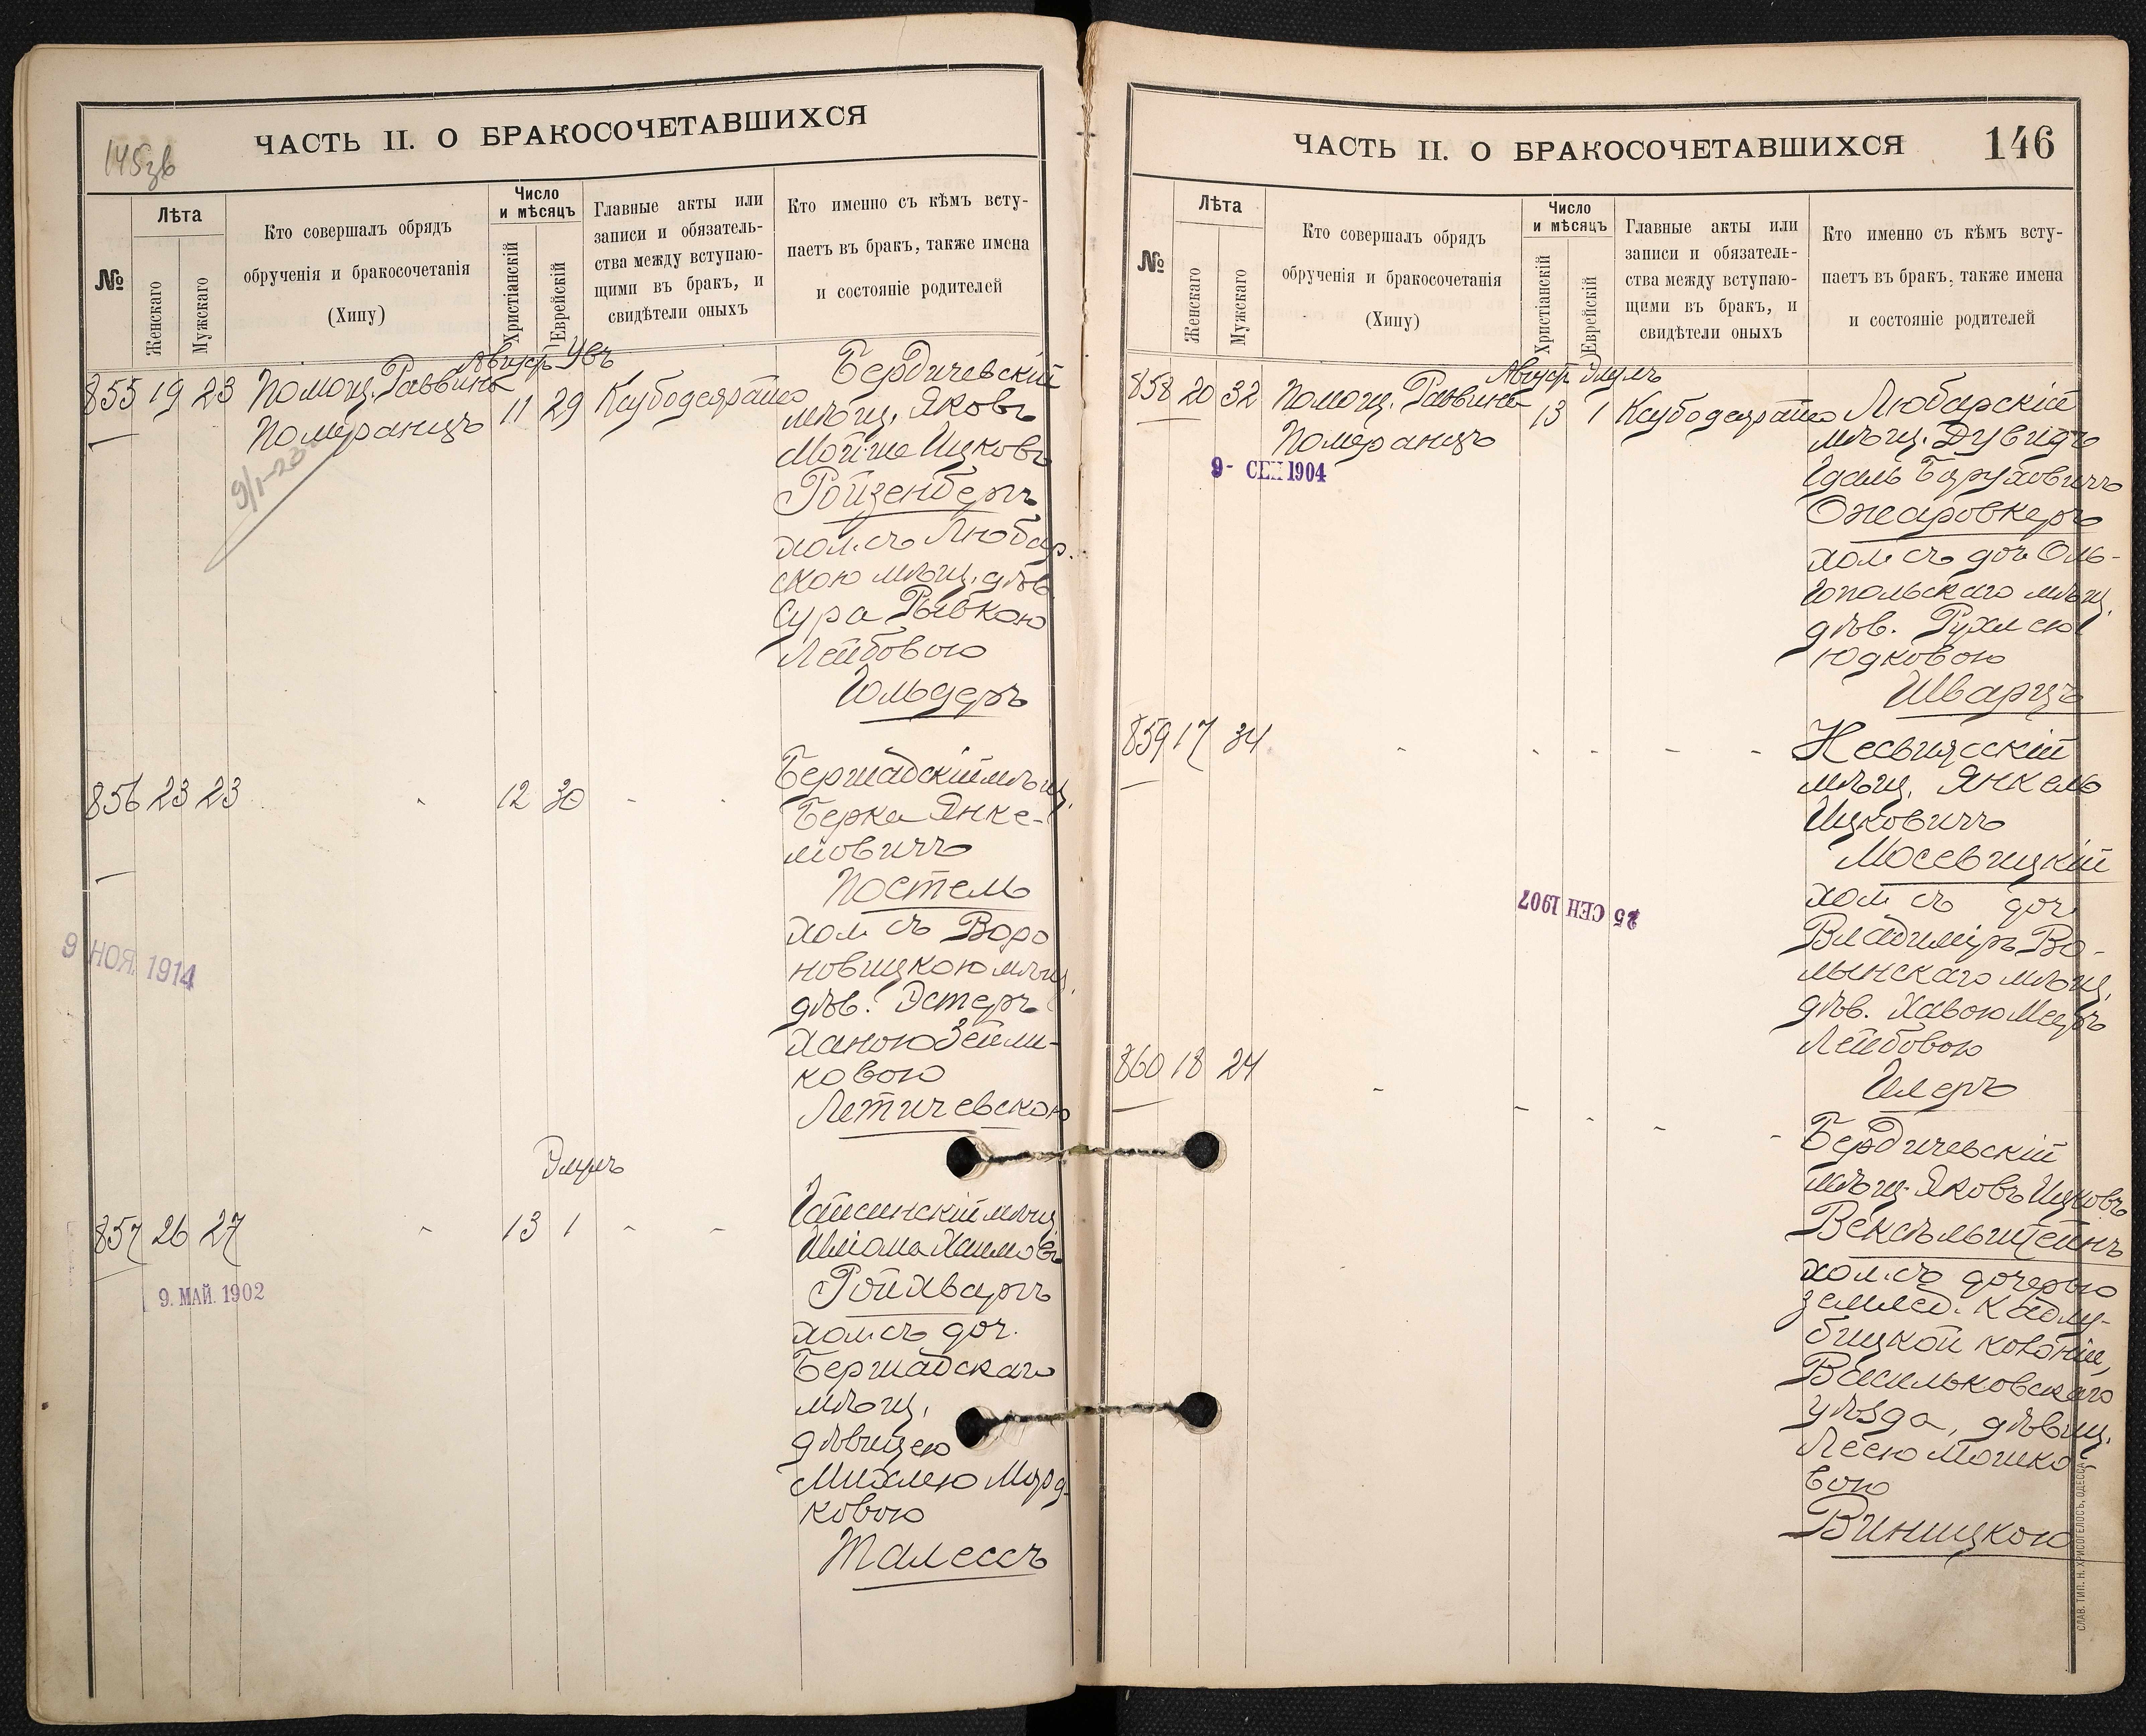 145зв
ЧАСТЬ II. О БРАКОСОЧЕТАВШИХСЯ
№
Лѣта
Женскаго
Мужскаго
Кто совершалъ обрядъ
обрученія и бракосочетанія
(Хипу)
Число
и мѣсяцъ
Христіанскій
Еврейскій
Главные акты или
записи и обязатель-
ства между вступаю-
щими въ бракъ, и
свидѣтели оныхъ
Кто именно съ кѣмъ всту-
паетъ въ бракъ, также имена
и состояніе родителей
Август Увъ
855 19 23 Помощ. Раввина 11 29
Померанцъ
9/I-23
Бердичевскій
мѣщ. Яковъ
Мойше Ицковъ
Ройзенбергъ
хол. съ Любар-
скою мѣщ. дѣв.
Сура Рывкою
Лейбовою
Гольдеръ
856 23 23 12 30
Бершадскій мѣщ.
Берка Янке-
лiовичъ
Постель
хол. съ Воро
новицкою мѣщ.
дѣв. Эстеръ
Ханою Зейли-
ковою
Летичевскою
9 НОЯ. 1914
Элулъ
857 26 27 13 1
Гайсинскій мѣщ.
Шліома Хаимовъ
Ройхваргъ
хол. съ доч.
Бершадскаго
мѣщ.
дѣвицею
Михлею Морд-
ковою
Талессъ
9. МАЙ. 1902
ЧАСТЬ II. О БРАКОСОЧЕТАВШИХСЯ 146
№
Лѣта
Женскаго
Мужскаго
Кто совершалъ обрядъ
обрученія и бракосочетанія
(Хипу)
Число
и мѣсяцъ
Христіанскій
Еврейскій
Главные акты или
записи и обязатель-
ства между вступаю-
щими въ бракъ, и
свидѣтели оныхъ
Кто именно съ кѣмъ всту-
паетъ въ бракъ, также имена
и состояніе родителей
Август Элулъ
858 20 32 Помощ. Раввина 13 1
Померанцъ
9- СЕН 1904
Любарскій
мѣщ. Дувидъ
Идель Баруховичъ
Ожаровкеръ
хол. съ доч. Оль-
гопольскаго мѣщ.
дѣв. Рухлею
Юдковою
Шварцъ
859 17 34
Несвижскій
мѣщ. Янкель
Ицковичъ
Мосевицкій
хол. съ доч.
Владиміръ Во-
лынскаго мѣщ.
дѣв. Хавою Мееръ
Лейбовою
Шлеръ
25 СЕН 1907
860 18 24
Бердичевскій
мѣщ. Яковъ Ицковъ
Вексельштейнъ
хол. съ дочерью
землед. Кадлу-
бицкой колоніи,
Васильковскаго
уѣзда, дѣвиц.
Леею Мошко-
вою
Виницкою
СЛАВ. ТИП. Н. ХРИСОГЕЛОСЪ, ОДЕССА